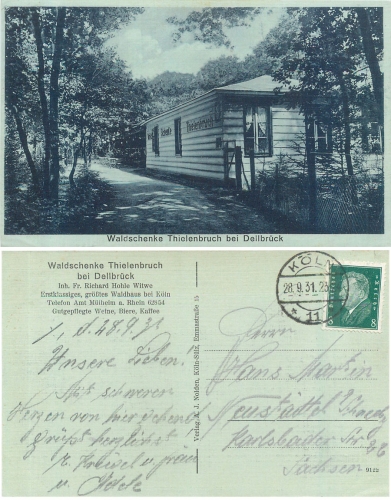 Schenke Thielenbruch
Waldschenke Thielenbruch bei Dellbrück
Waldschenke Thielenbruch
bei Dellbrück
Inh. Fr. Richard Hohle Witwe
Erstklassiges, größtes Waldhaus bei Köln
Telefon Amt Mülheim a. Rhein 62954
Gutgepflegte Weine, Biere, Kaffee
d. 28.9.31
Unsere Lieben.
Mit schweren
Herzen von hier
grüßt herzlichst
u. Frau
u.
Verlag v. J. Nolden, Köln-Sülz, Emmastraße 15
KÖLN
28.9.31.
11
8
Herrn
Hans Martin
Neustädtel
Karlsbader Str
Sachsen
9122